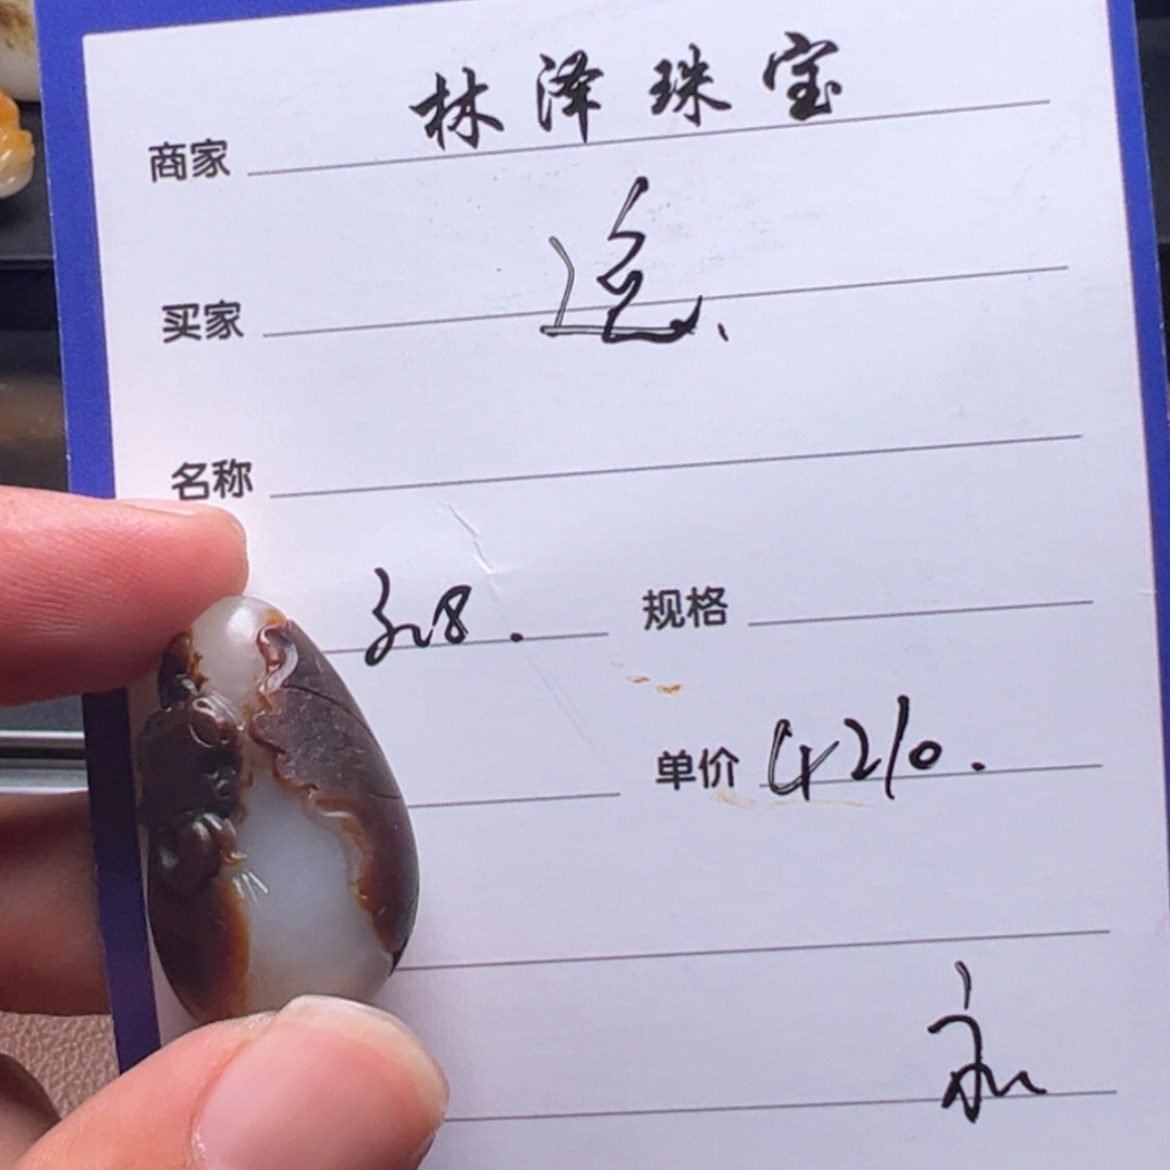 商家 林泽珠宝
买家
名称
规格
单价 4210.